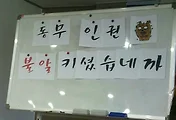 동무 인권
불알 키셨습네까